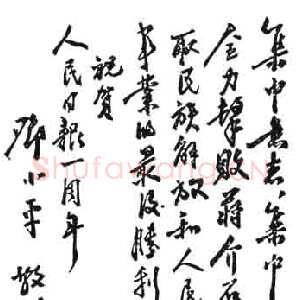 集中意志、集中
全力击败蒋介石
取民族解放和人民
事业的最后胜利
祝贺
人民日报一周年
邓小平 敬
Shufawang.CN